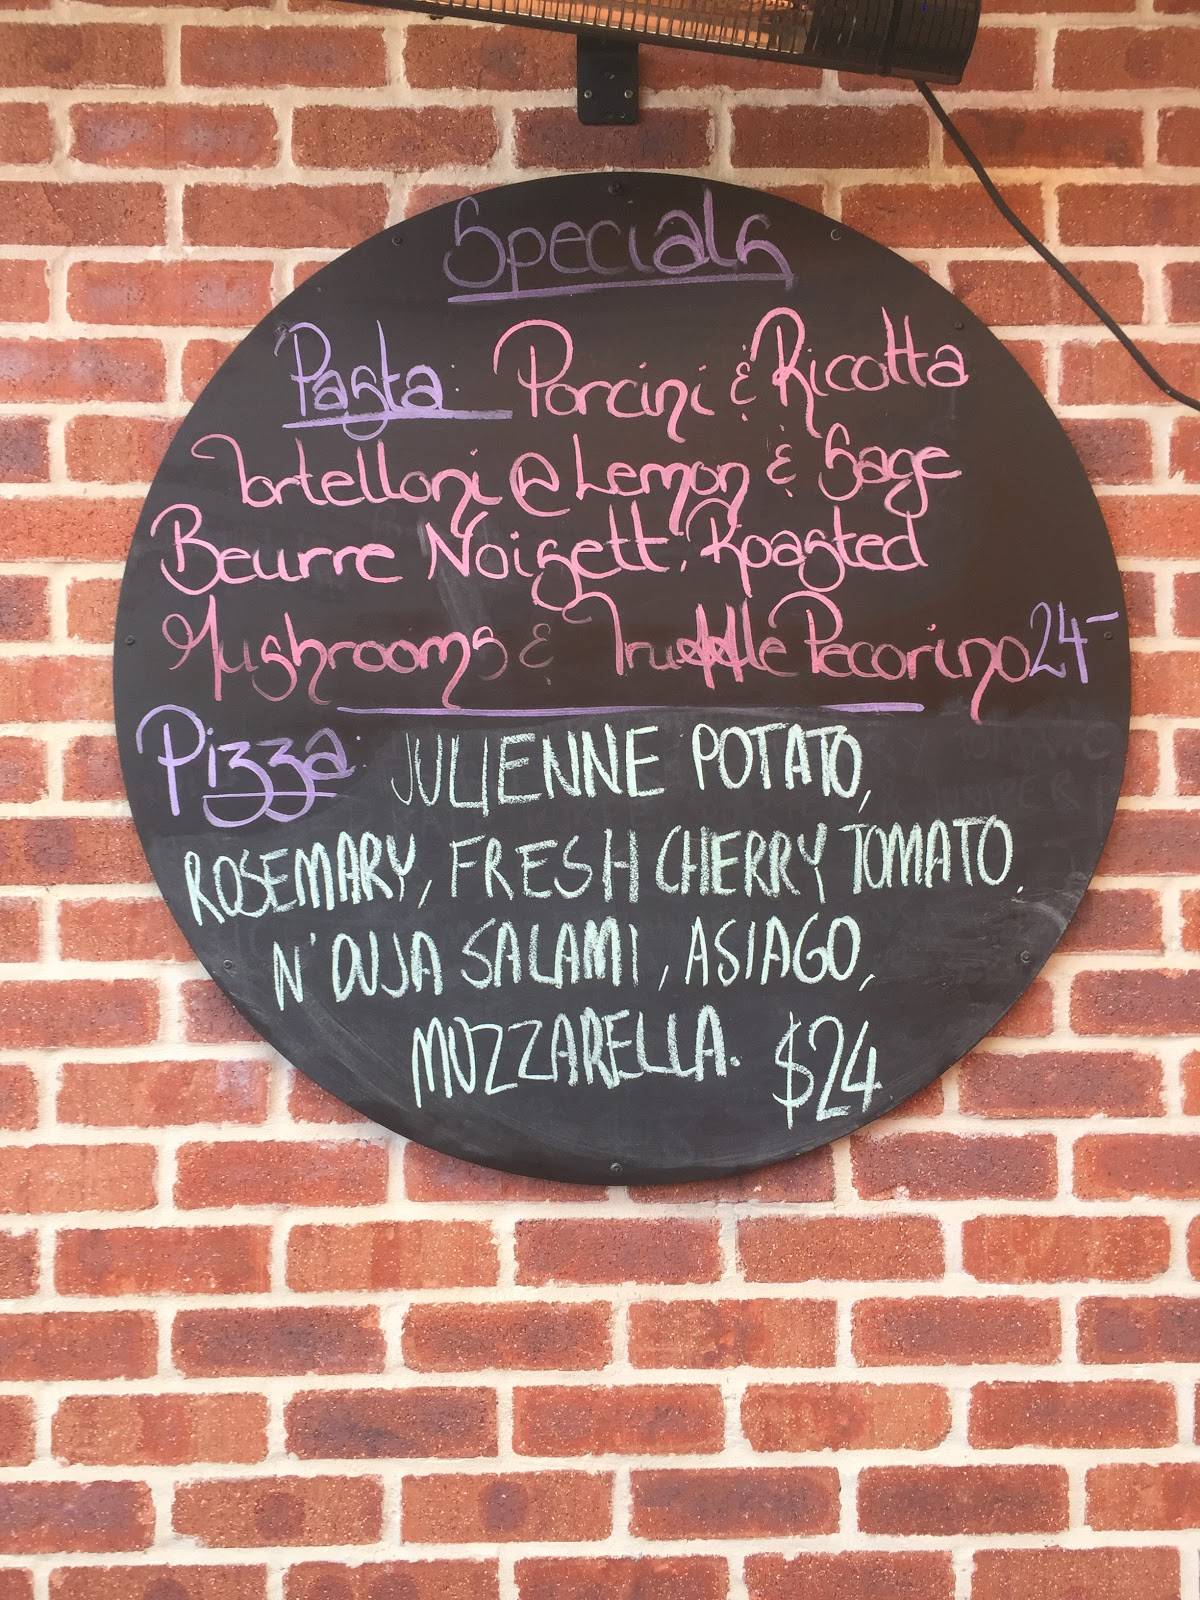 Specials
Pasta: Porcini & Ricotta
Tortelloni @ Lemon & Sage
Beurre Noisett, Roasted
Mushrooms & Truffle Pecorino 24-
Pizza: JULIENNE POTATO,
ROSEMARY, FRESH CHERRY TOMATO.
N'DUJA SALAMI, ASIAGO,
MOZZARELLA. $24